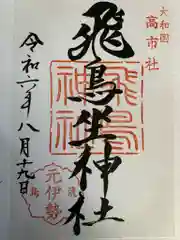 大和国
高市社
飛鳥坐神社
飛鳥
神社
元伊勢
令和六年八月十九日